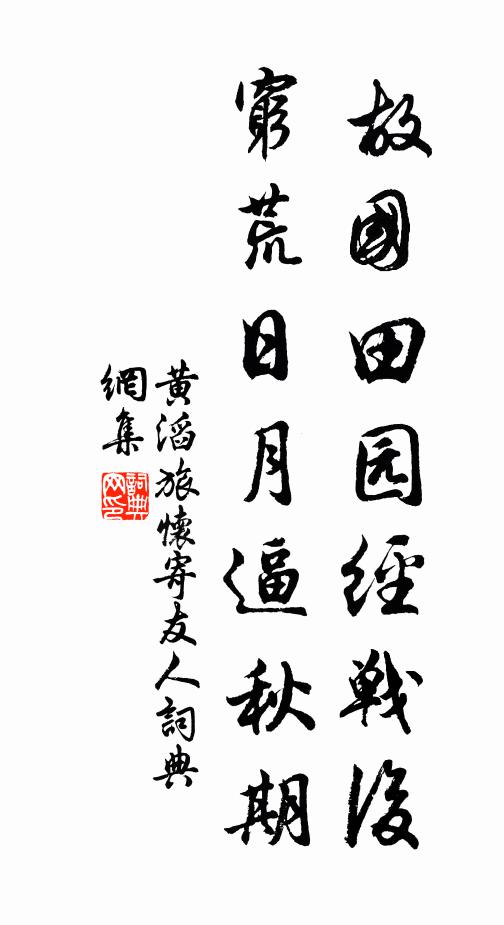 故國田园經戦後
窮荒日月逼秋期
黄滔旅懷寄友人詞典
網集
詞典
网印